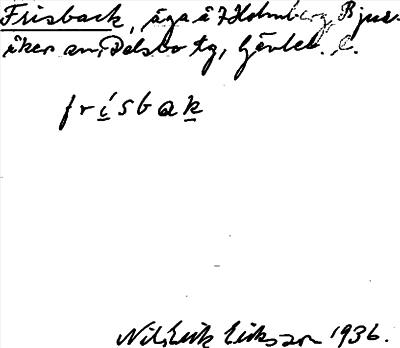 Frisback, äga å 7 Holmberg, Bjus-
åker sn, Delsbo tg, Gävleb. l.
frísbak
Nils Erik Eriksson 1936.